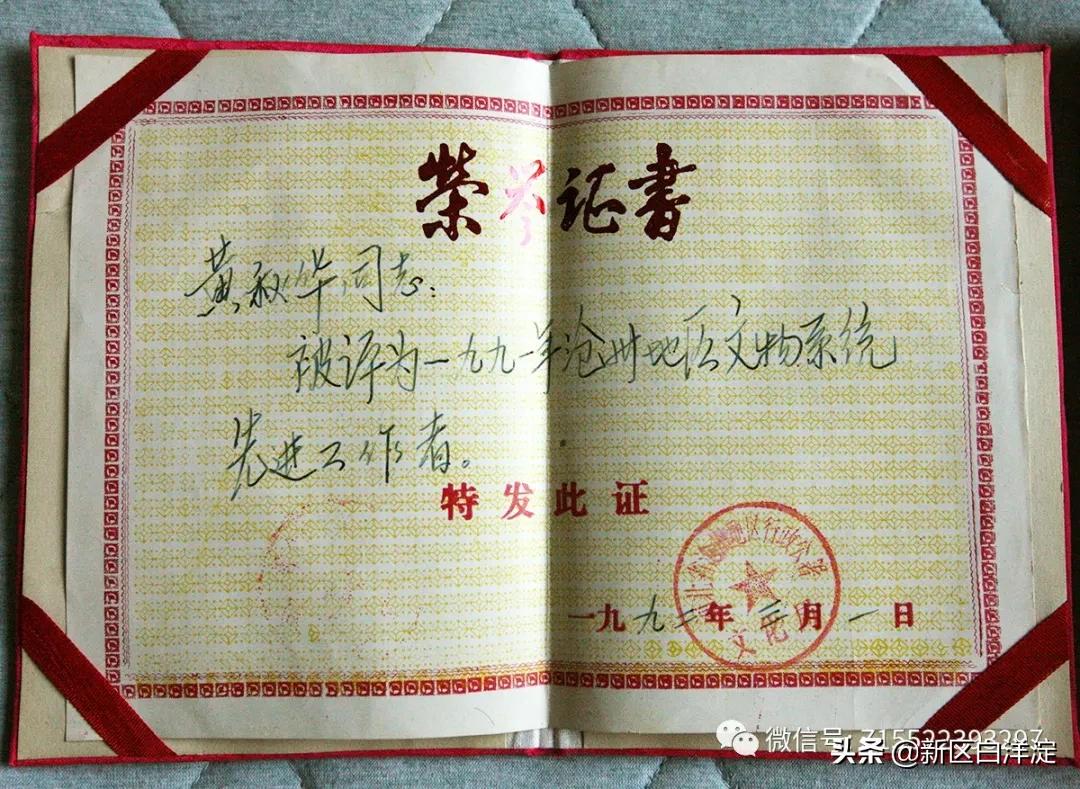 荣誉证书
黄秋华同志:
被评为一九九一年沧州地区文物系统
先进工作者。
特发此证
河北省沧州地区行政公署
文化局
一九九二年三月一日
微信号: Z15522393297
头条 @新区白洋淀